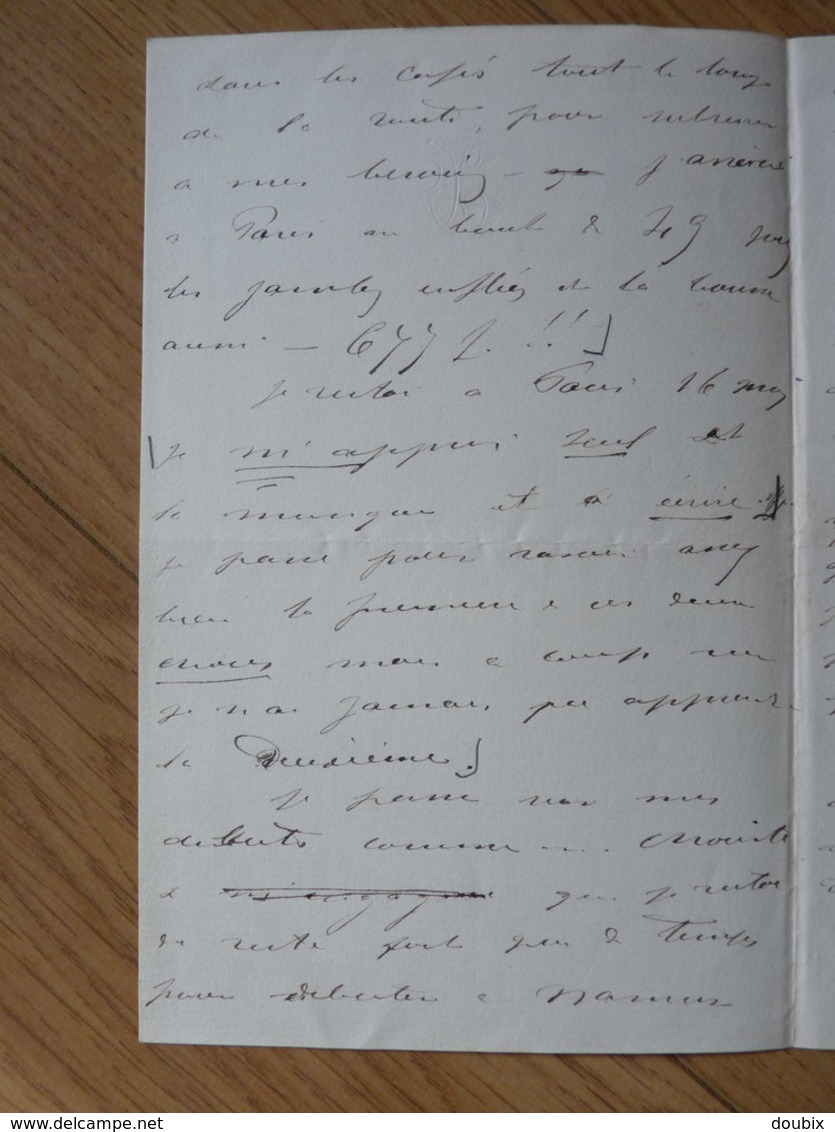 dans les cafés tout le long
de la route, pour subvenir
à mes besoins - j'arrivai
à Paris au bout de 49 jours
les jambes enflées et la bourse
aussi - 677 f. !!]
Je restai à Paris 16 mois
je m'appris seul et
la musique et à écrire
je passe pour savoir assez
bien la première de ces deux
choses mais à coup sûr
je n'ai jamais pu apprendre
la deuxième.]
Je passe sur mes
débuts comme choriste
que je restai
du reste fort peu de temps
pour débuter à Namur
www.delcampe.net
doubix